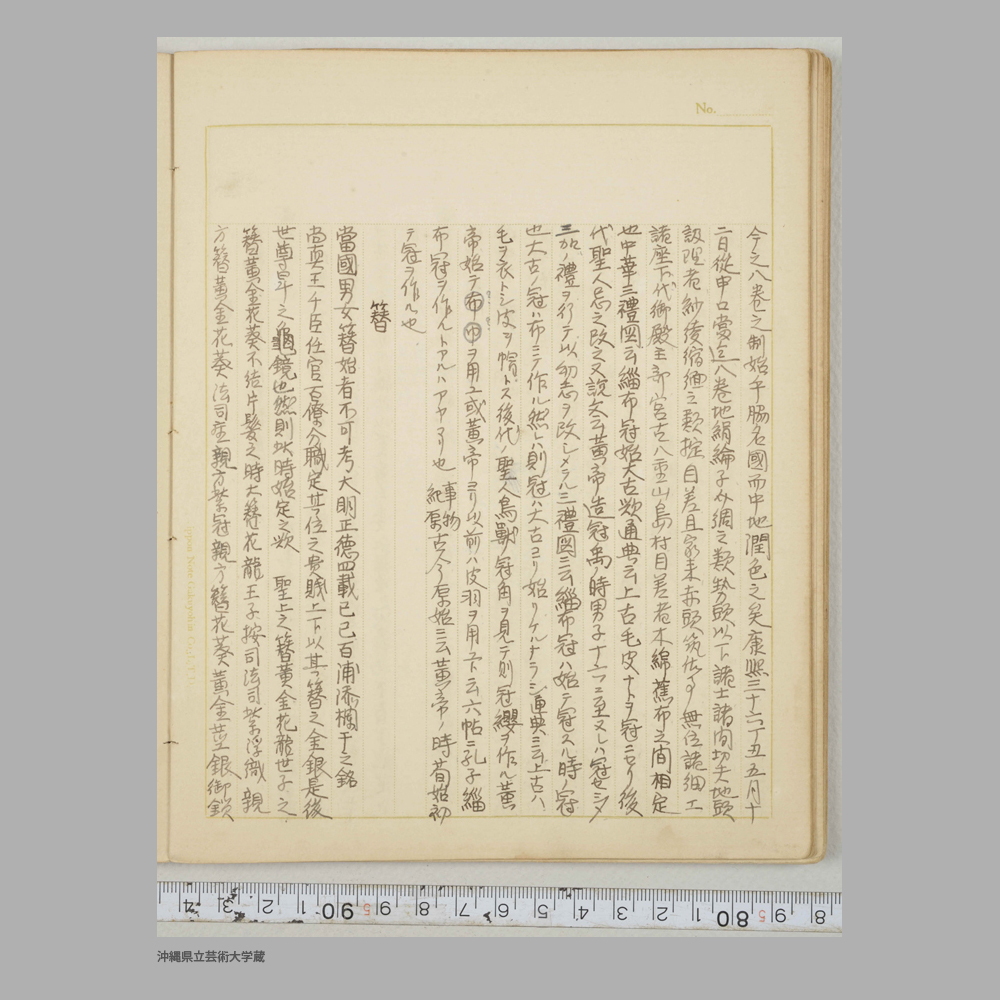 No.
今之八巻之制始乎膓名國而中地潤色之矣康熙三十六丁丑五月十
二日從申口當迄八巻地絹綸子外綢之類勢頭以下諸士諸間切夫地頭
設理者紗綾縮緬之類掟目差且家来赤頭筑佐事無位諸細工
諸座下代御殿主部宮古八重山島村目差者木綿蕉布之間相定
也中華三禮圖云緇布冠始大古歟通典云上古毛皮ナトヲ冠ニセリ後
代聖人忌之改之又說云黄帝造冠禹ノ時男子十二ニ至又レハ冠セシメ
三加ノ禮ヲ行テ以幼志ヲ改シメラル三禮圖ニ云緇布冠ハ始テ冠スル時ノ冠
也大古ノ冠ハ布ニテ作ル然レハ則冠ハ大古ヨリ始リケルナラシ通典ニ云上古ハ
毛ヲ衣トシ皮ヲ帽トス後代ノ聖人鳥獸冠角ヲ見テ則冠纓ヲ作ル黄
帝始テ布巾ヲ用ユ或黄帝ヨリ以前ハ皮羽ヲ用ユト云六帖ニ孔子緇
布冠ヲ作ルトアルハアヤマリ也 事物紀原古今原始ニ云黄帝ノ時荀始初
テ冠ヲ作ル也
簪
當國男女簪始者不可考大明正德四載己巳百浦添欄干之銘
尚真王千臣任官百僚分職定其位之貴賤上下以其簪之金銀是後
世尊卑之亀鏡也然則此時始定之歟 聖上之簪黄金花龍世子之
簪黄金花葵不結片髪之時大簪花龍王子按司法司紫浮織親
方簪黄金花葵法司座親方紫冠親方簪花葵黄金莖銀御鎖
沖縄県立芸術大学蔵